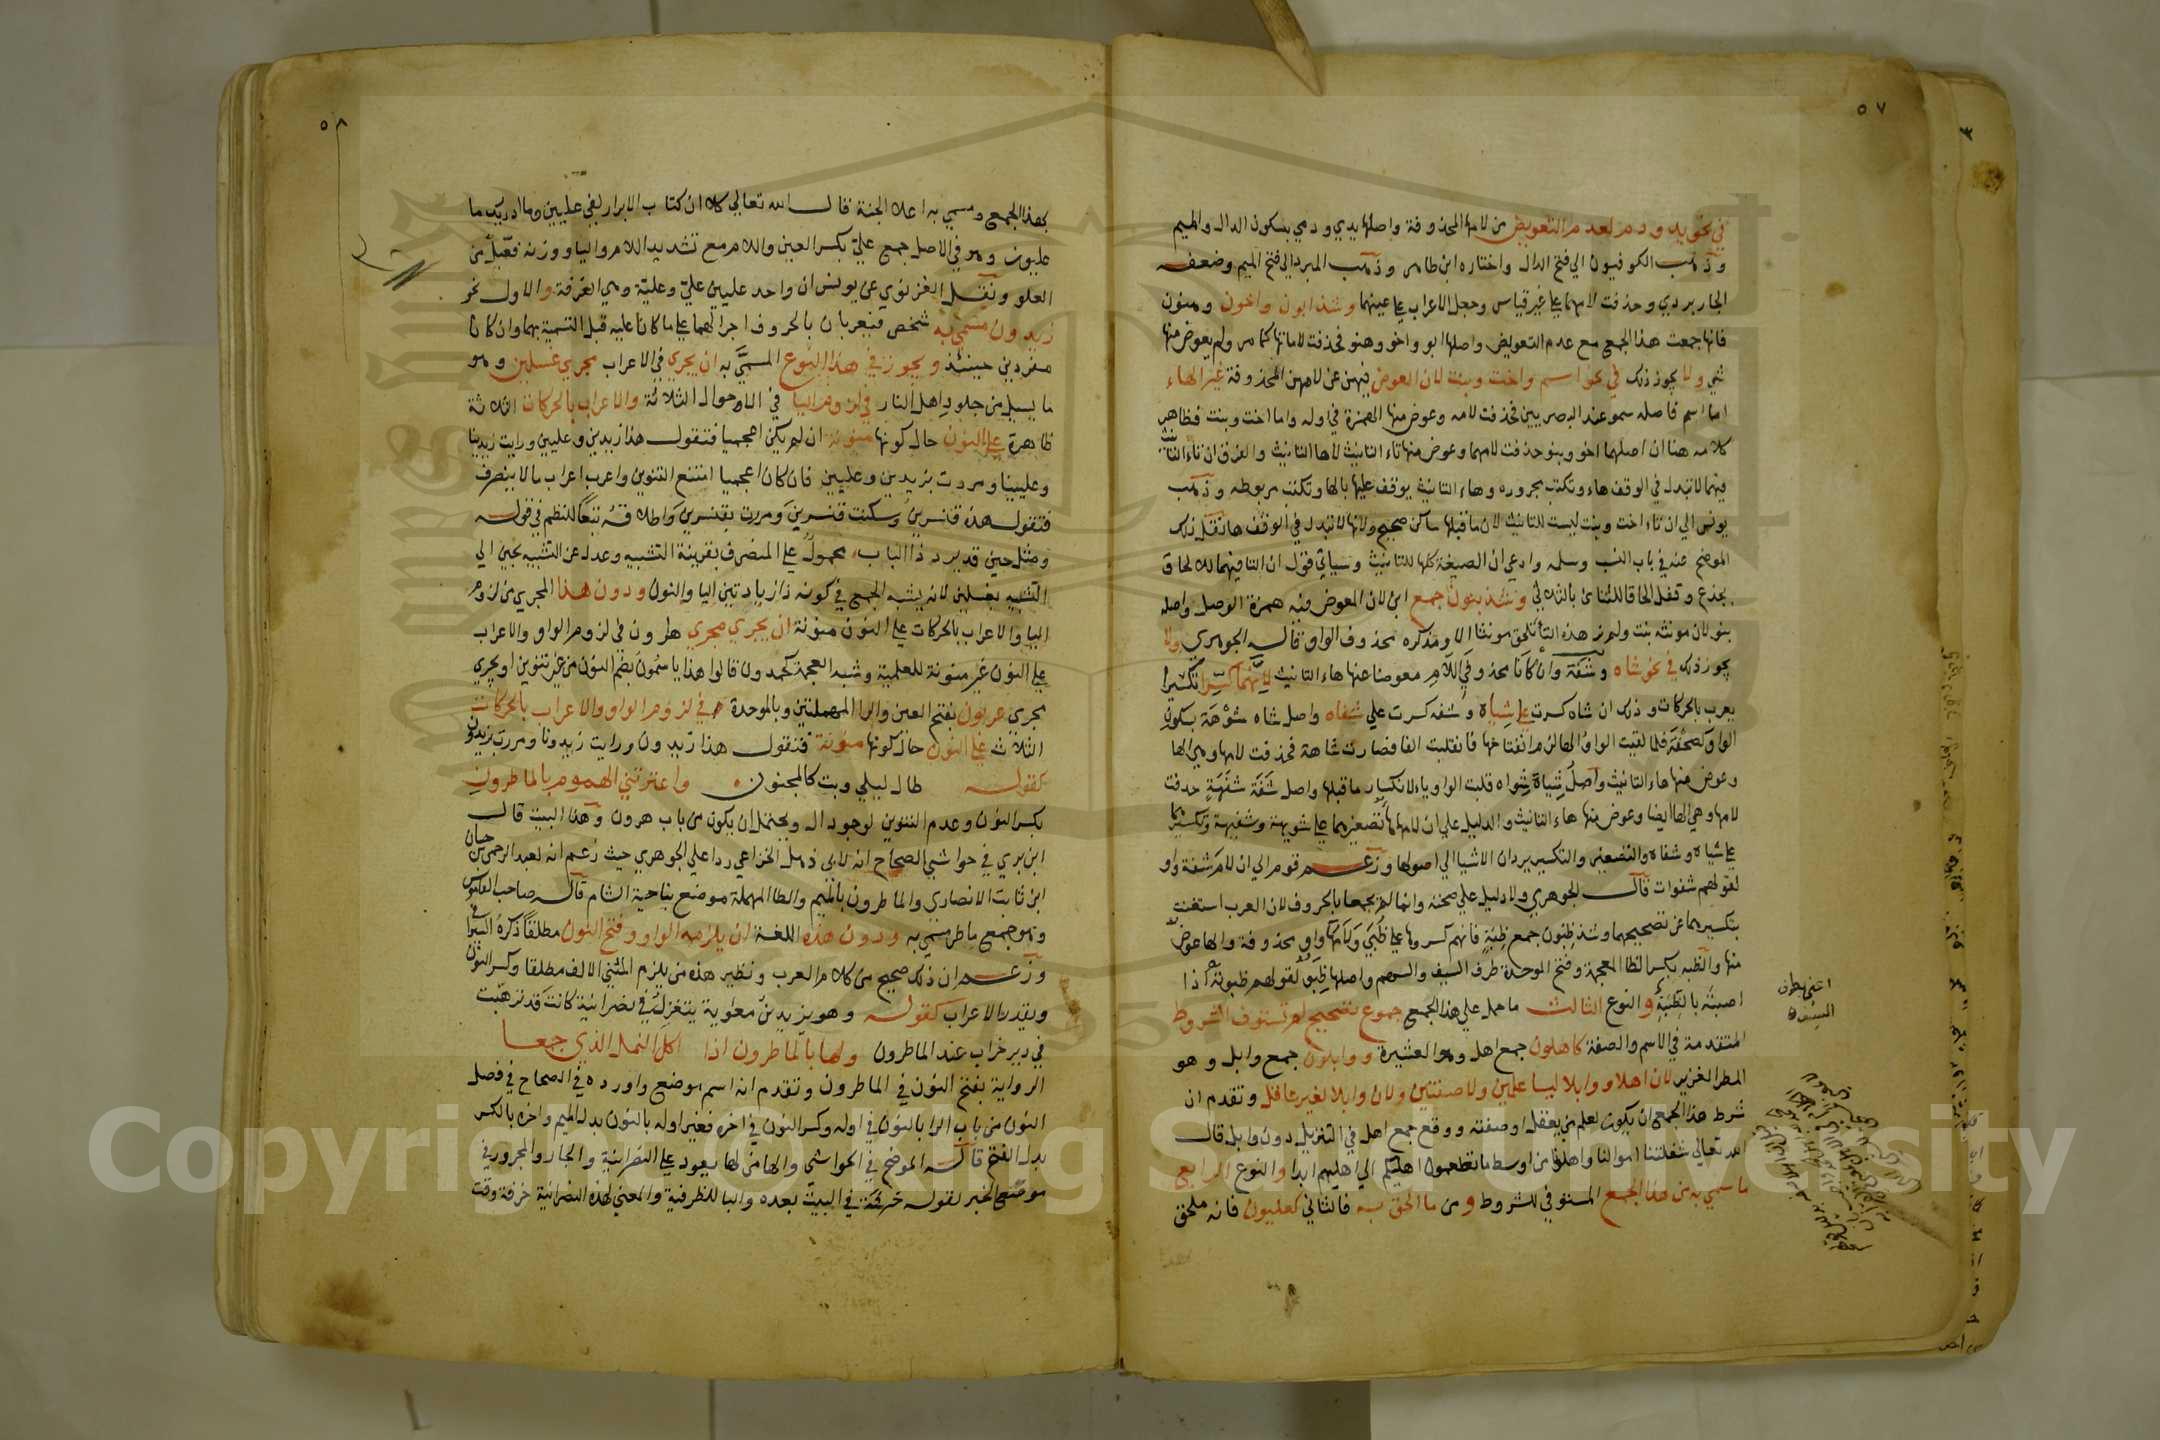 ٥٧
في نحو يد ودم لعدم التعويض من لامها المحذوفة واصلها يدي ودمي بسكون الدال والميم
وذهب الكوفيون الي فتح الدال واختاره ابن طاهر وذهب المبرد الي فتح الميم وضعفه
الجاربردي وحذفت لامهما علي غير قياس وجعل الاعراب علي عينهما وشذ ابون واخون وهنون
فانها جمعت هذا الجمع مع عدم التعويض واصلها ابو واخو وهنو فحذفت لاماتها كما مر ولم يعوض منها
شي ولا يجوز ذلك في نحو اسم واخت وبنت لان العوض فيهن عن لامهن المحذوفة غير الهاء
اما اسم فاصله سمو عند البصريين فحذفت لامه وعوض منها الهمزة في اوله واما اخت وبنت فظاهر
كلامه هنا ان اصلهما اخو وبنو حذفت لامهما وعوض منها تاء التانيث لا ها التانيث والفرق ان تاء التانيث
فيهما لا تبدل في الوقف هاء وتكتب مجروره وهاء التانيث يوقف عليها بالها وتكتب مربوطه وذهب
يونس الي ان تاء اخت وبنت ليست للتانيث لان ما قبلها ساكن صحيح ولانها لا تبدل في الوقف ها نقل ذلك
الموضح عنه في باب النسب وسلمه وادعي ان الصيغة كلها للتانيث وسياتي قول ان التا فيهما للالحاق
بجذع وقفل الحاقا للثنائي بالثلاثي وشذ بنون جمع ابن لان المعوض فيه همزة الوصل واصله
بنو لان مونثه بنت ولم نر هذه التا تلحق مونثا الا ومذكره محذوف الواو قاله الجوهري ولا
يجوز ذلك في نحو شاه وشفة وان كانا محذوفي اللام معوضا عنها هاء التانيث لانهما كسرا تكسيرا
يعرب بالحركات وذلك ان شاه كسرت علي شياه وشفه كسرت علي شفاه واصل شاه شوهة بسكون
الواو كصحفة فلما لقيت الواو الها لزم انفتاحها فانقلبت الفا فصارت شاهة فحذفت لامها وهي الها
وعوض منها هاء التانيث واصل شياه شواه قلبت الواو ياء لانكسار ما قبلها واصل شفة شفهة حذفت
لامها وهي الها ايضا وعوض منها هاء التانيث والدليل علي ان لامهما ها تصغيرهما علي شويهة وشفيهة وتكسيرهما
علي شياه وشفاه والتصغير والتكسير يردان الاشيا الي اصولها وزعم قوم الي ان لام شفة واو
لقولهم شفوات قال الجوهري ولا دليل علي صحته وانما لم يجمعا بالحروف لان العرب استغنت
بتكسيرهما عن تصحيحهما وشذ ظبون جمع ظبة فانهم كسروها علي ظبي ولامها واو محذوفة والها عوض
منها والظبه بكسر الظا المعجمة وفتح الموحدة طرف السيف والسهم واصلها ظبو لقولهم ظبوته اذا
اصبته بالظبة والنوع الثالث ما حمل علي هذا الجمع جموع تصحيح لم تستوف الشروط
المتقدمة في الاسم والصفة كاهلون جمع اهل وهو العشيرة ووابلون جمع وابل وهو
المطر الغزير لان اهلا ووابلا ليسا علمين ولا صفتين ولان وابلا لغير عاقل وتقدم ان
شرط هذا الجمع ان يكون لعلم من يعقل او صفته ووقع جمع اهل في التنزيل دون وابل قال
الله تعالي شغلتنا اموالنا واهلونا من اوسط ما تطعمون اهليكم الي اهليهم ابدا والنوع الرابع
ما سمي به من هذا الجمع المستوفي للشروط ومن ما الحق به فالثاني كعليون فانه ملحق
٥٨
بهذا الجمع وسمي به اعلا الجنة قال الله تعالي كلا ان كتاب الابرار لفي عليين وما ادريك ما
عليون وهو في الاصل جمع علي بكسر العين واللام مع تشديد اللام واليا ووزنه فعيل من
العلو ونقل الغزنوي عن يونس ان واحد عليين علي وعلية وهي الغرفة والاول نحو
زيدون مسمي به شخص فيعربان بالحروف اجرا لهما علي ما كانا عليه قبل التسمية بهما وان كانا
مفردين حينئذ ويجوز في هذا النوع المسمي به ان يجري في الاعراب مجري غسلين وهو
ما يسيل من جلود اهل النار في لزوم اليا في الاحوال الثلاثة والاعراب بالحركات الثلاثة
ظاهرة علي النون حال كونها منونة ان لم يكن اعجميا فتقول هذا زيدين وعليين ورايت زيدينا
وعليينا ومررت بزيدين وعليين فان كان اعجميا امتنع التنوين واعرب اعراب ما لا ينصرف
فتقول هذه قنسرين وسكنت قنسرين ومررت بقنسرين واطلاقه تبعا للنظم في قوله
ومثل حين قد يرد ذا الباب محمول علي المنصرف بقرينة التشبيه وعدل عن التشبيه بحين الي
التشبيه بغسلين لانه يشبه الجمع في كونه ذا زيادتين اليا والنون ودون هذا المجري من لزوم
اليا والاعراب بالحركات علي النون منونة ان يجري مجري هارون في لزوم الواو والاعراب
علي النون غير منونة للعلمية وشبه العجمة كحمدون قالوا هذا ياسمون بضم النون من غير تنوين او يجري
مجري عربون بفتح العين والرا المهملتين وبالموحدة في لزوم الواو والاعراب بالحركات
الثلاث علي النون حال كونها منونة فتقول هذا زيدون ورايت زيدونا ومررت بزيدون
كقوله طال ليلي وبت كالمجنون واعترتني الهموم بالماطرون
بكسر النون وعدم التنوين لوجود ال ويحتمل ان يكون من باب هرون وهذا البيت قال
ابن بري في حواشي الصحاح انه لابي دهبل الخزاعي ردا علي الجوهري حيث زعم انه لعبد الرحمن بن حسان
ابن ثابت الانصاري والماطرون بالميم والطا المهملة موضع بناحية الشام قاله صاحب القاموس
وهو جمع ماطر سمي به ودون هذه اللغة ان يلزمه الواو وفتح النون مطلقا ذكره السيرافي
وزعم ان ذلك صحيح من كلام العرب ونظير هذه من يلزم المثني الالف مطلقا وكسر النون
ويقدر الاعراب كقوله وهو يزيد بن معوية يتغزل في نصرانية كانت قد ترهبت
في دير خراب عند الماطرون ولها بالماطرون اذا اكل النمل الذي جمعا
الرواية بفتح النون في الماطرون وتقدم انه اسم موضع واورده في الصحاح في فصل
النون من باب الرا بالنون في اوله وكسر النون في اخره فغير اوله بالنون بدل الميم واخره بالكسر
بدل الفتح قاله الموضح في الحواشي والها من لها يعود علي النصرانية والجار والمجرور في
موضع الخبر لقوله خرفة في البيت بعده والبا للظرفية والمعني لهذه النصرانية خرفة وقت
اعني طرف
السيف
Copyright © King Saud University